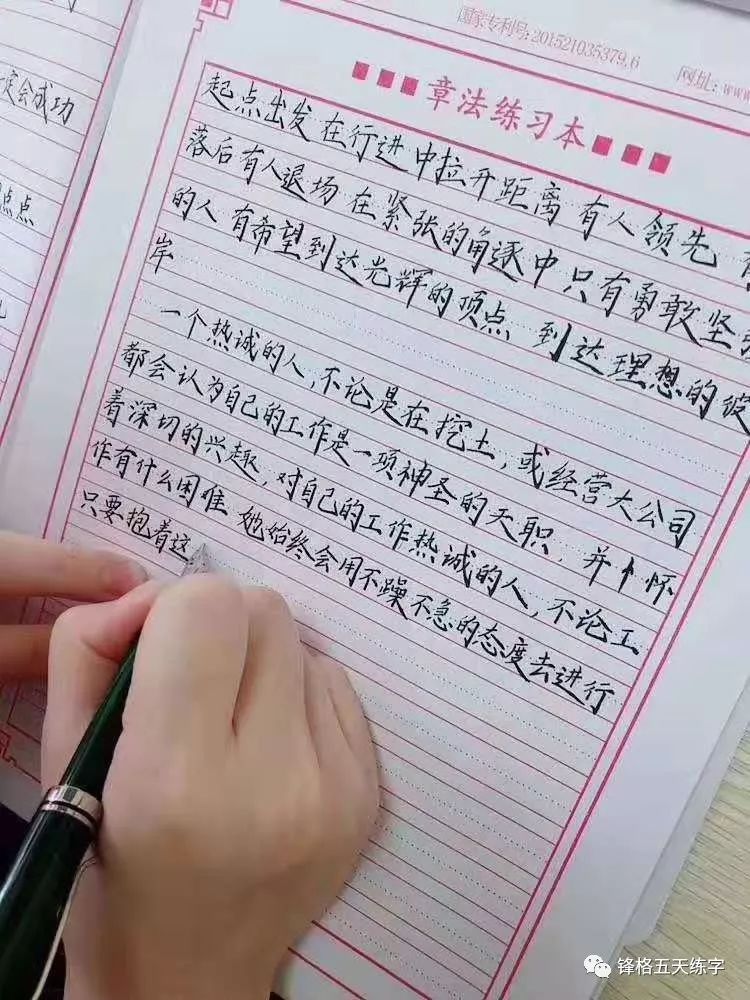 国家专利号:201521035379.6
网址:www
章法练习本
定会成功
点点
起点出发 在行进中拉开距离 有人领先
落后有人退场 在紧张的角逐中只有勇敢坚
的人 有希望到达光辉的顶点 到达理想的彼
岸
一个热诚的人,不论是在挖土,或经营大公司
都会认为自己的工作是一项神圣的天职,并怀
着深切的兴趣,对自己的工作热诚的人,不论工
作有什么困难 她始终会用不躁不急的态度去进行
只要抱着这
锋格五天练字